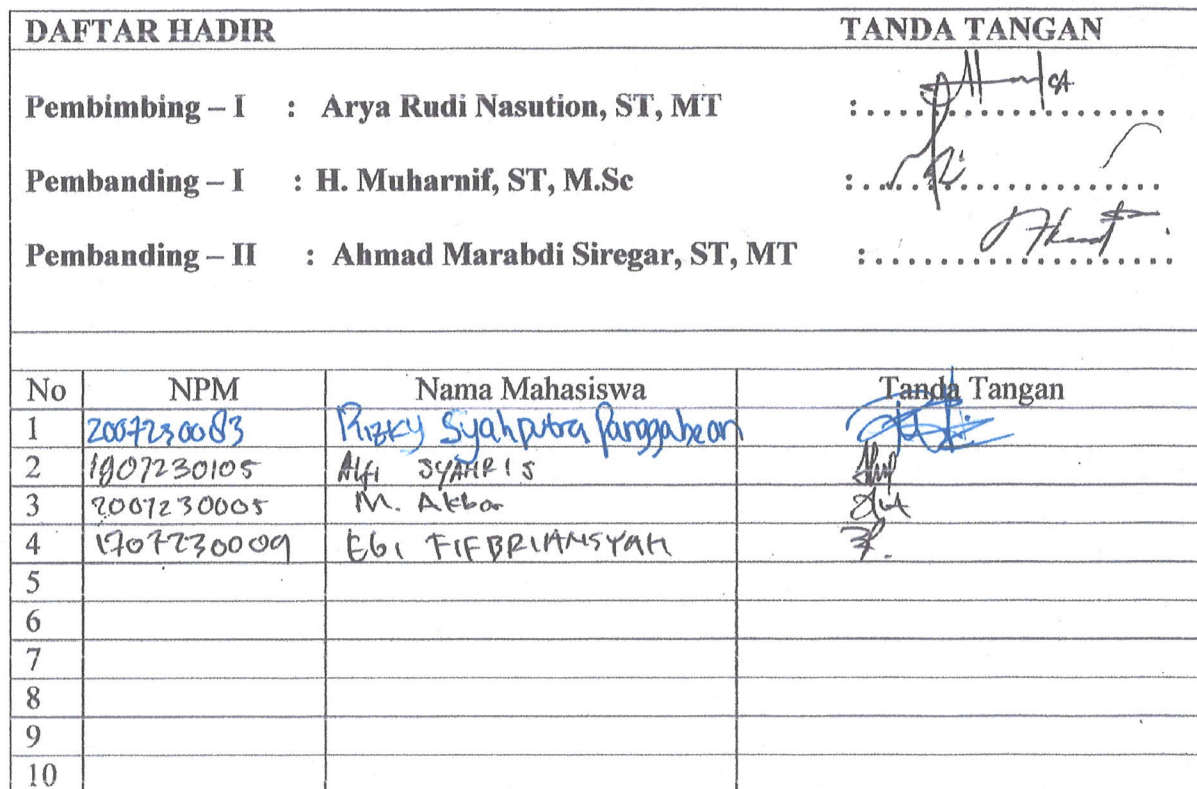 DAFTAR HADIR TANDA TANGAN
Pembimbing – I : Arya Rudi Nasution, ST, MT :....................
Pembanding – I : H. Muharnif, ST, M.Sc :....................
Pembanding – II : Ahmad Marabdi Siregar, ST, MT :....................
No NPM Nama Mahasiswa Tanda Tangan
1 2007230083 Rizky Syahputra Panggabean
2 1907230105 Alfi SYAHRIS
3 2007230005 M. Akbar
4 1707230009 EGI FIFBRIANSYAH
5
6
7
8
9
10